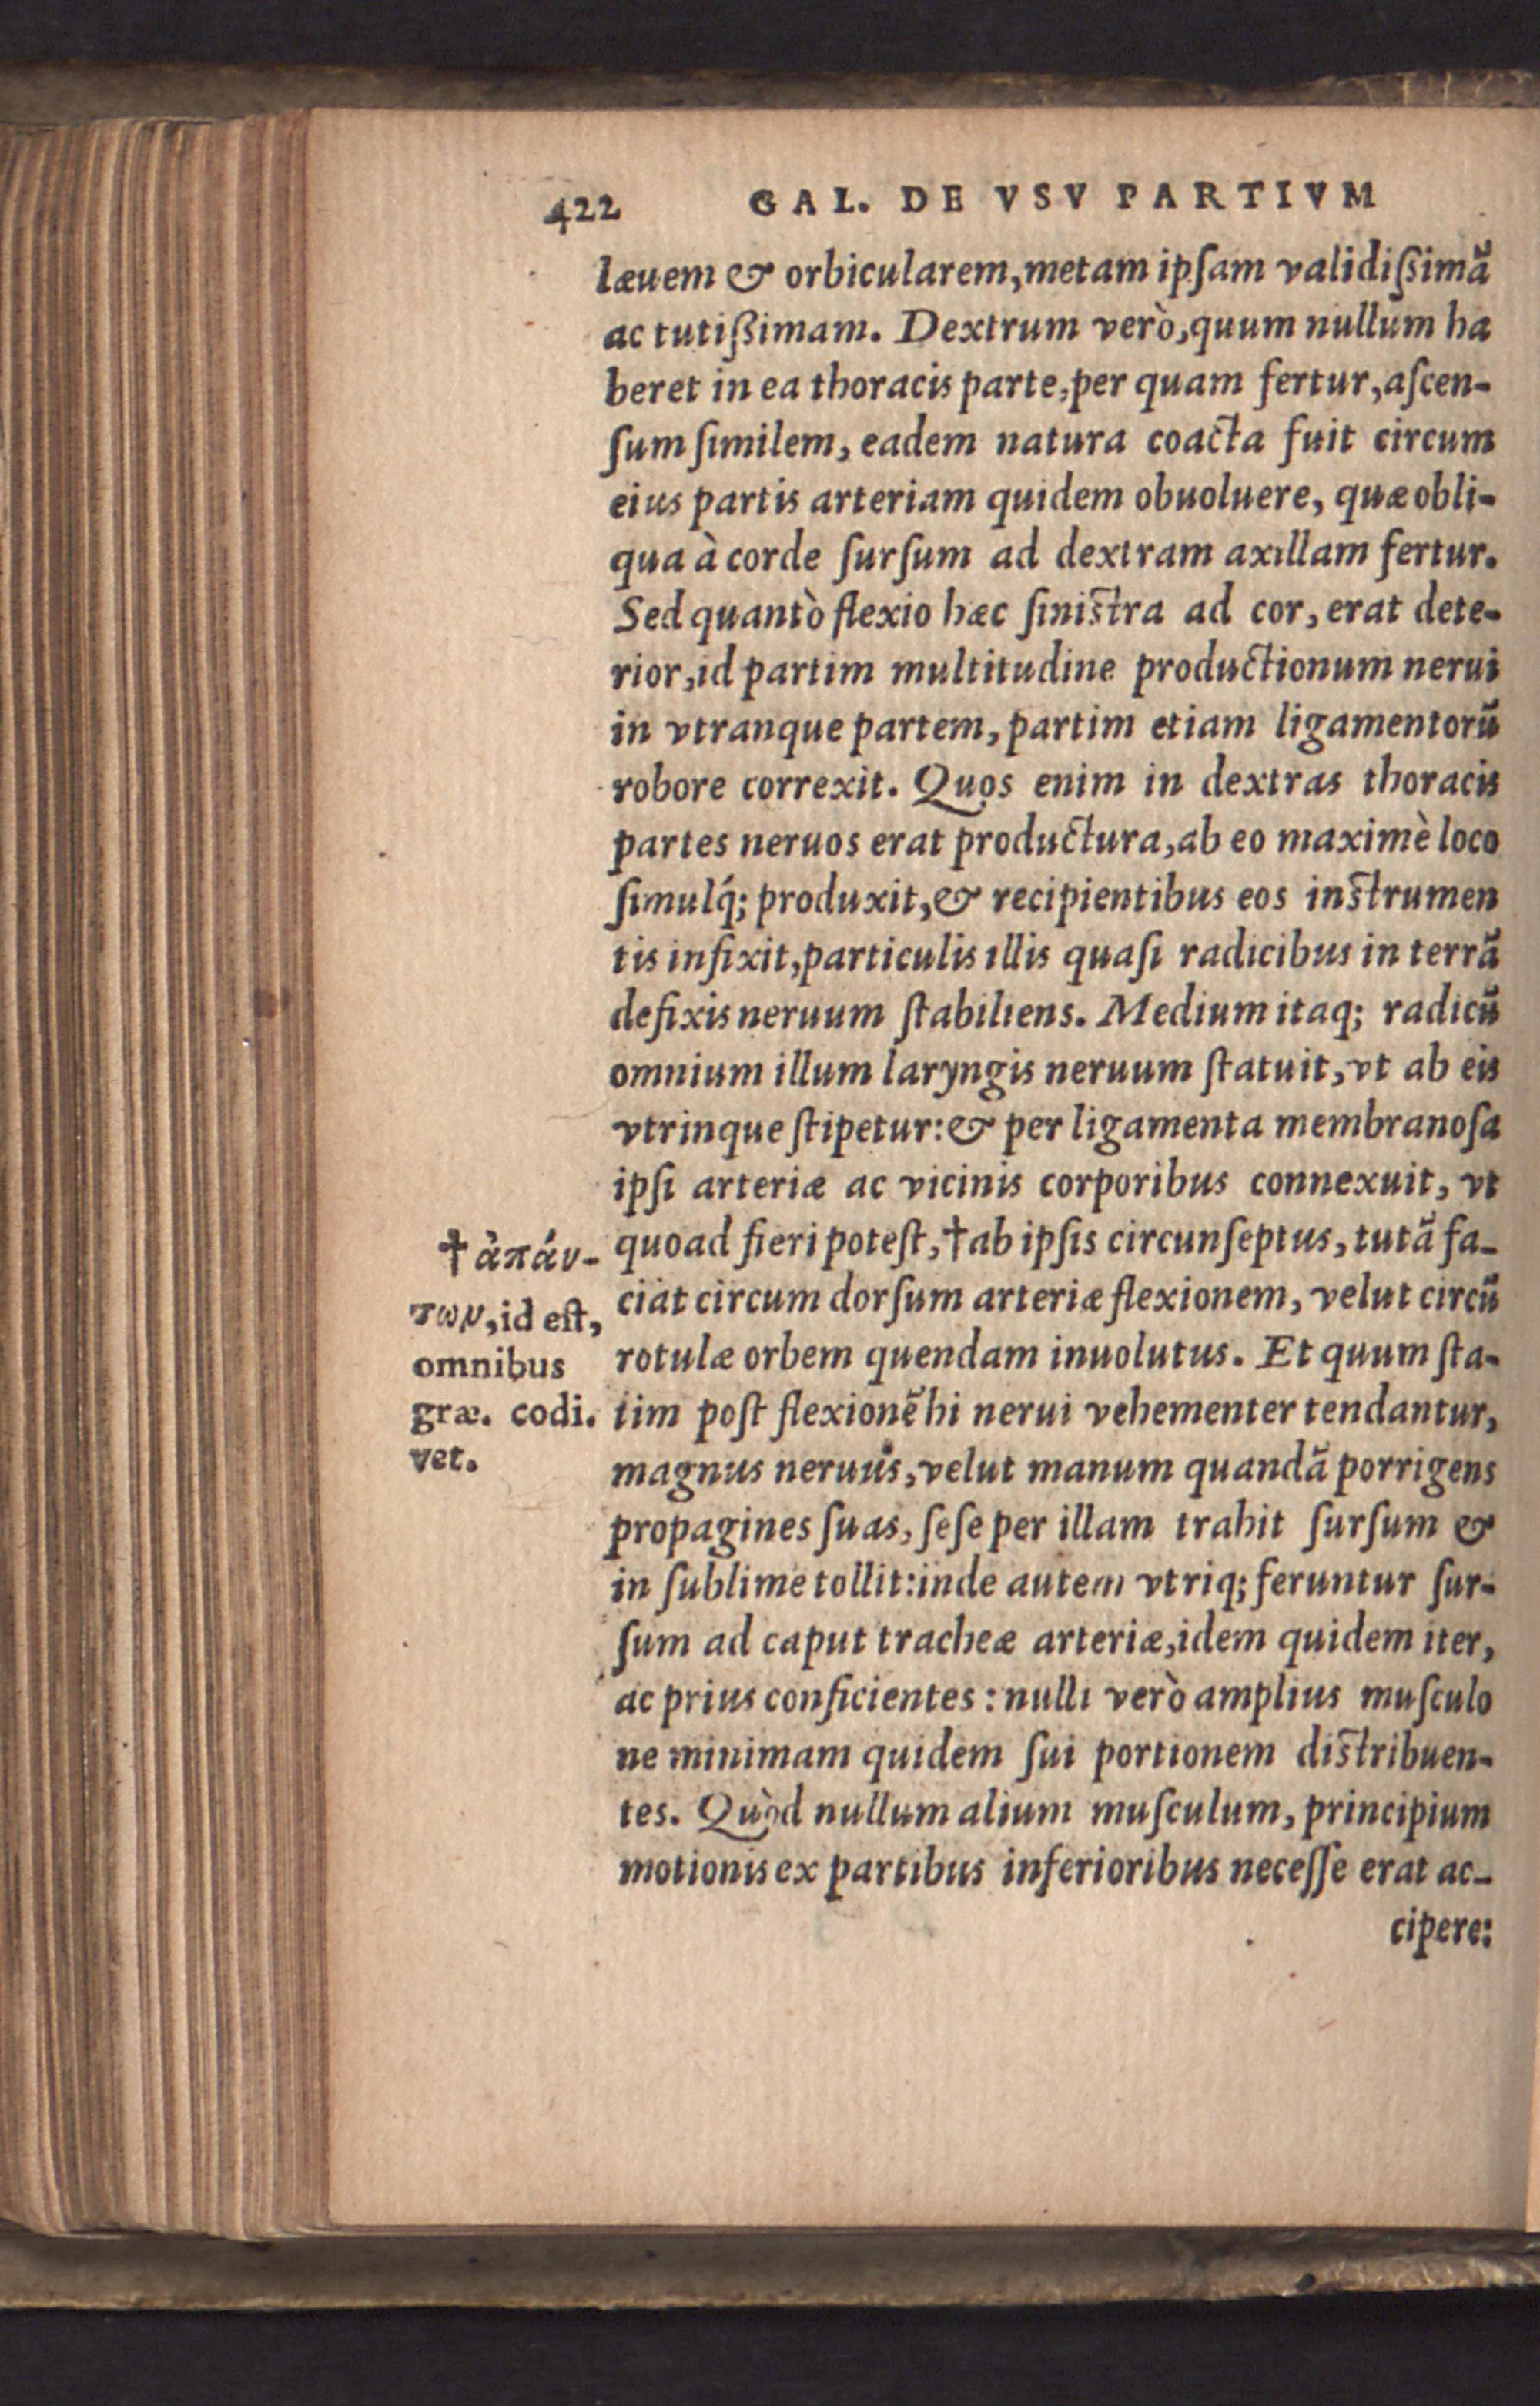 422 GAL. DE VSV PARTIVM
læuem & orbicularem, metam ipſam validißimã
ac tutißimam. Dextrum verò, quum nullum ha
beret in ea thoracis parte, per quam fertur, aſcen-
ſum ſimilem, eadem natura coacta fuit circum
eius partis arteriam quidem obuoluere, quæ obli-
qua à corde ſurſum ad dextram axillam fertur.
Sed quantò flexio hæc ſiniſtra ad cor, erat dete-
rior, id partim multitudine productionum nerui
in vtranque partem, partim etiam ligamentorũ
robore correxit. Quos enim in dextras thoracis
partes neruos erat productura, ab eo maximè loco
ſimulq́; produxit, & recipientibus eos inſtrumen
tis infixit, particulis illis quaſi radicibus in terrã
defixis neruum ſtabiliens. Medium itaq; radicũ
omnium illum laryngis neruum ſtatuit, vt ab eis
vtrinque ſtipetur: & per ligamenta membranoſa
ipſi arteriæ ac vicinis corporibus connexuit, vt
quoad fieri poteſt, †ab ipſis circunſeptus, tutã fa-
ciat circum dorſum arteriæ flexionem, velut circũ
rotulæ orbem quendam inuolutus. Et quum ſta-
tim poſt flexionẽ hi nerui vehementer tendantur,
magnus neruus, velut manum quandã porrigens
propagines ſuas, ſeſe per illam trahit ſurſum &
in ſublime tollit: inde autem vtriq; feruntur ſur-
ſum ad caput tracheæ arteriæ, idem quidem iter,
ac prius conficientes: nulli verò amplius muſculo
ne minimam quidem ſui portionem diſtribuen-
tes. Quòd nullum alium muſculum, principium
motionis ex partibus inferioribus neceſſe erat ac-
cipere:
† ἁπάν-
των, id eſt,
omnibus
græ. codi.
vet.